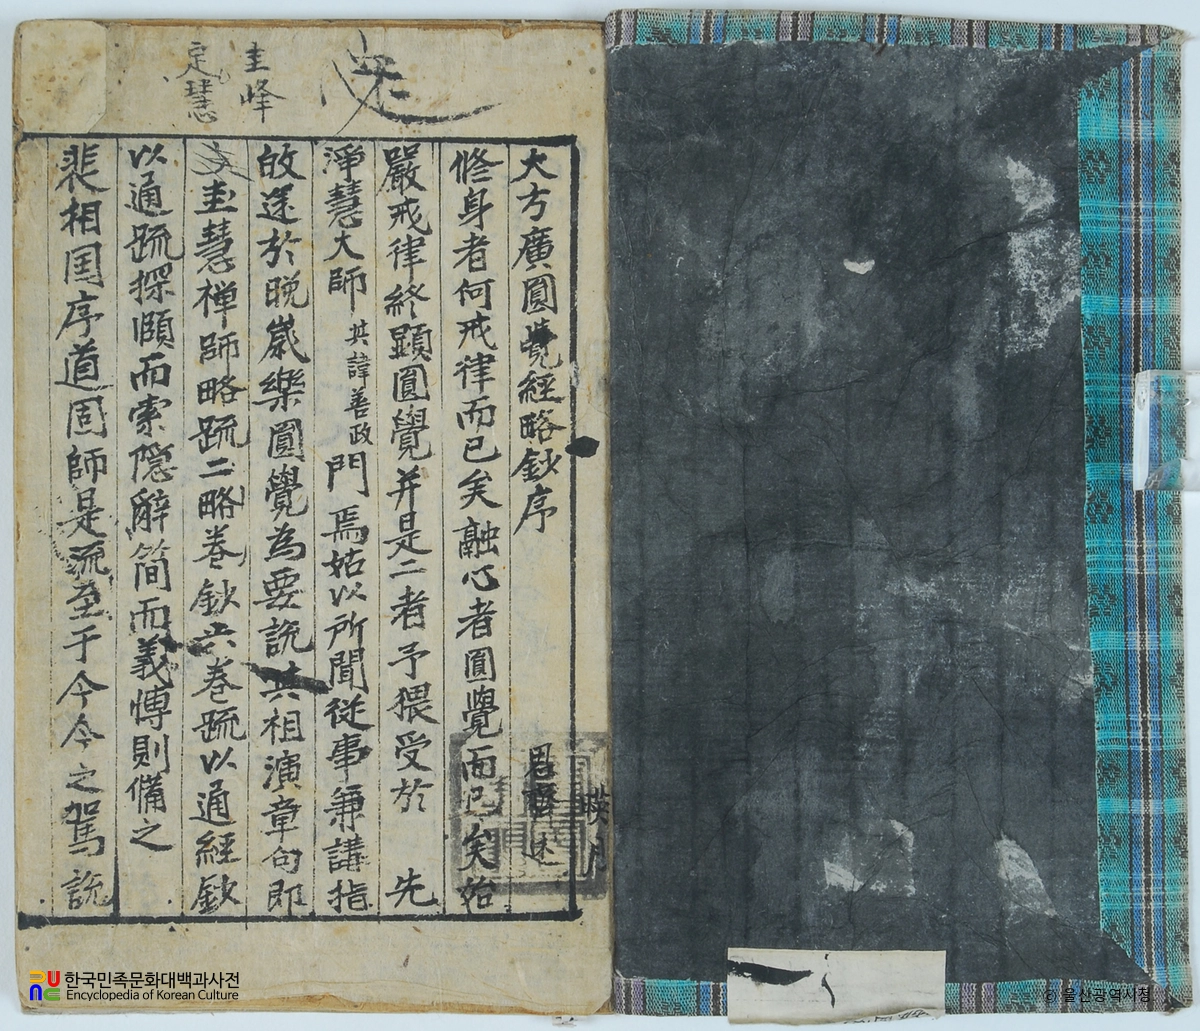 大方廣圓覺經略鈔序
君齊述
映月
修身者何戒律而已矣融心者圓覺而已矣始
嚴戒律終顯圓覺并是二者予猥受於 先
淨慧大師其諱善政門焉姑以所聞從事兼講指
故逕於晩歲樂圓覺為要說共相演章句即
圭慧禪師略䟽二略卷鈔六卷䟽以通經鈔
以通䟽探賾而索隱辭簡而義博則備之
裴相国序道固師是流至于今今之駕說
圭峰
定慧
한국민족문화대백과사전
Encyclopedia of Korean Culture
© 울산광역시청